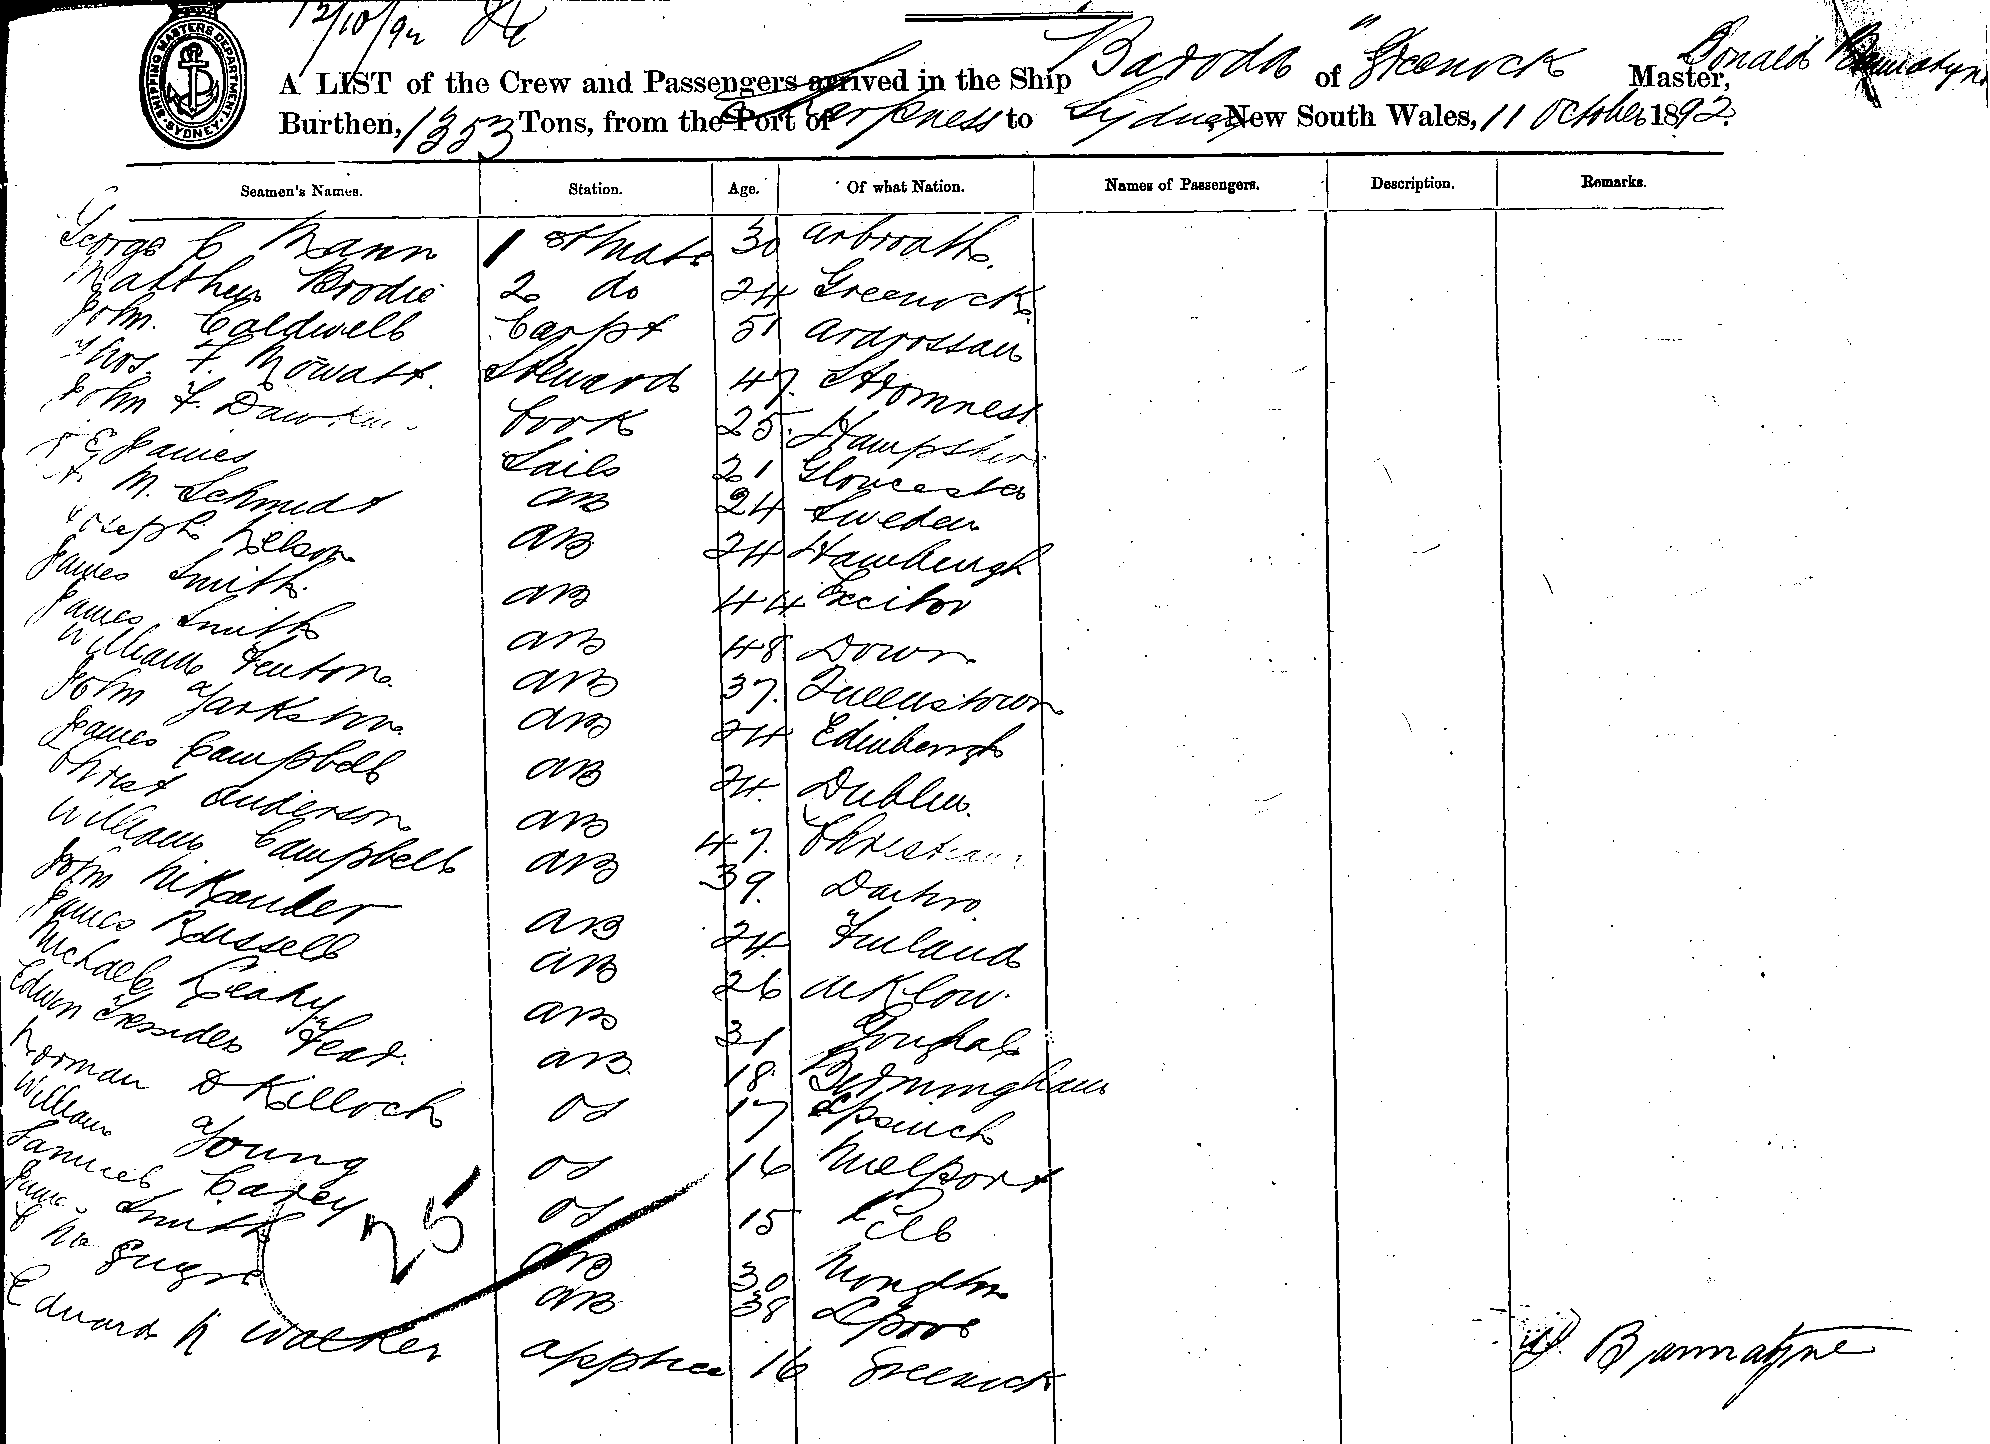 12/10/92
SHIPPING MASTERS DEPARTMENT SYDNEY
A LIST of the Crew and Passengers arrived in the Ship "Baroda" of Greenock Donald Bannatyne Master,
Burthen, 1353 Tons, from the Port of Sharpness to Sydney, New South Wales, 11 October 1892.
Seamen's Names. Station. Age. Of what Nation. Names of Passengers. Description. Remarks.
George C Mann 1st Mate 30 Arbroath.
Matthew Brodie 2 do 24 Greenock
John Caldwell Carpt 51 Ardrossan
Thos. F. Mowatt. Steward 47. Stromness
John F. Dawkin Cook 25. Hampshire
E James Sails 21 Gloucester
M. Schmidt AB 24 Sweden
Joseph Nelson AB 24 Hamburgh
James Smith. AB 44
James Smith AB 48 Down
William Fenton. AB 37. Queenstown
John Yorkston AB 24 Edinburgh
James Campbell AB 24. Dublin.
Christ Anderson AB 47. Christian
William Campbell AB 39.
John Nikander AB 24 Finland
James Russell AB 26 Arklow.
Michael Leahy AB 31 Youghal
Edwin Tressider Feat. AB 18 Birmingham
Norman D Killoch OS 17 Ipswich
William Young OS 16 Millport
Samuel Carey OS 15 Pill
James Smith AB 30
AB 38 Lpool
Edward N Walker apptice 16 Greenock
25
D. Bannatyne